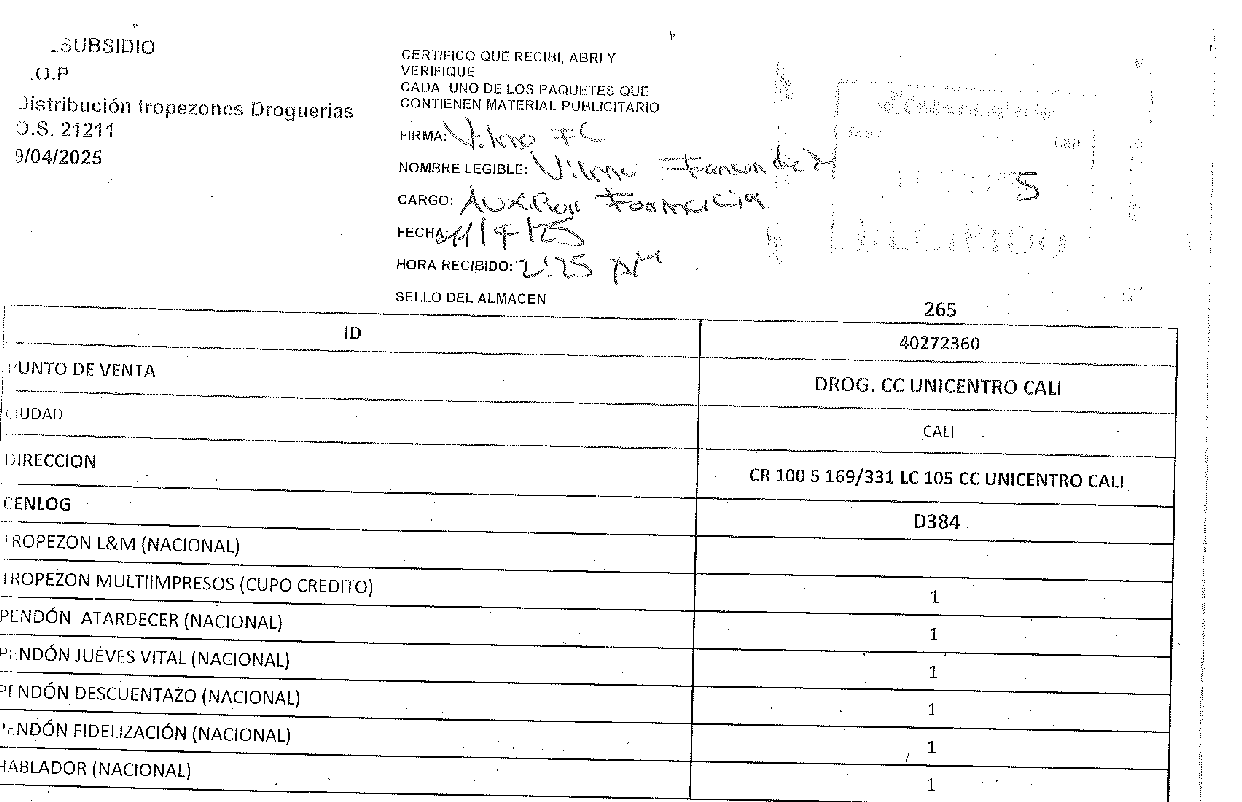 .SUBSIDIO
.O.P
Distribución tropezones Droguerias
O.S. 21211
9/04/2025
CERTIFICO QUE RECIBI, ABRI Y
VERIFIQUE
CADA UNO DE LOS PAQUETES QUE
CONTIENEN MATERIAL PUBLICITARIO
FIRMA:
NOMBRE LEGIBLE:
CARGO:
FECHA
HORA RECIBIDO: 2:25 PM
SELLO DEL ALMACEN
5
RECIBIDO
265
ID 40272360
PUNTO DE VENTA DROG. CC UNICENTRO CALI
CIUDAD CALI
DIRECCION CR 100 5 169/331 LC 105 CC UNICENTRO CALI
CENLOG D384
TROPEZON L&M (NACIONAL)
TROPEZON MULTIIMPRESOS (CUPO CREDITO) 1
PENDÓN ATARDECER (NACIONAL) 1
PENDÓN JUEVES VITAL (NACIONAL) 1
PENDÓN DESCUENTAZO (NACIONAL) 1
PENDÓN FIDELIZACIÓN (NACIONAL) 1
HABLADOR (NACIONAL) 1